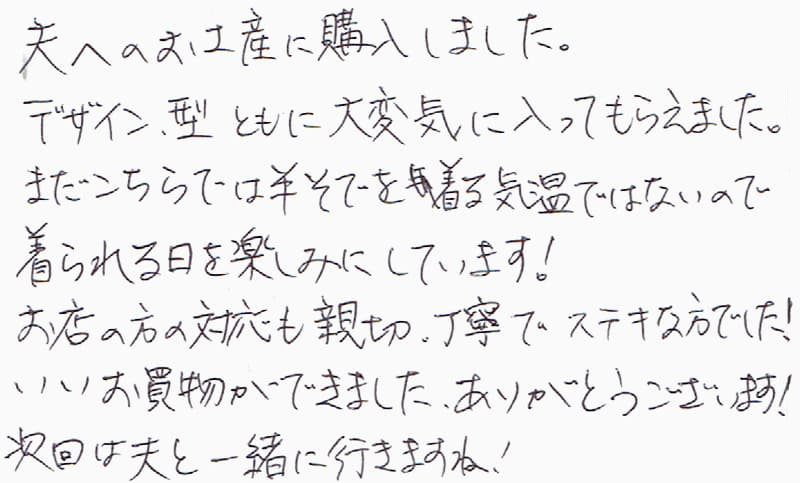 夫へのお土産に購入しました。
デザイン、型ともに大変気に入ってもらえました。
まだこちらでは半そでを着る気温ではないので
着られる日を楽しみにしています!
お店の方の対応も親切、丁寧でステキな方でした!
いいお買物ができました、ありがとうございます!
次回は夫と一緒に行きますね!